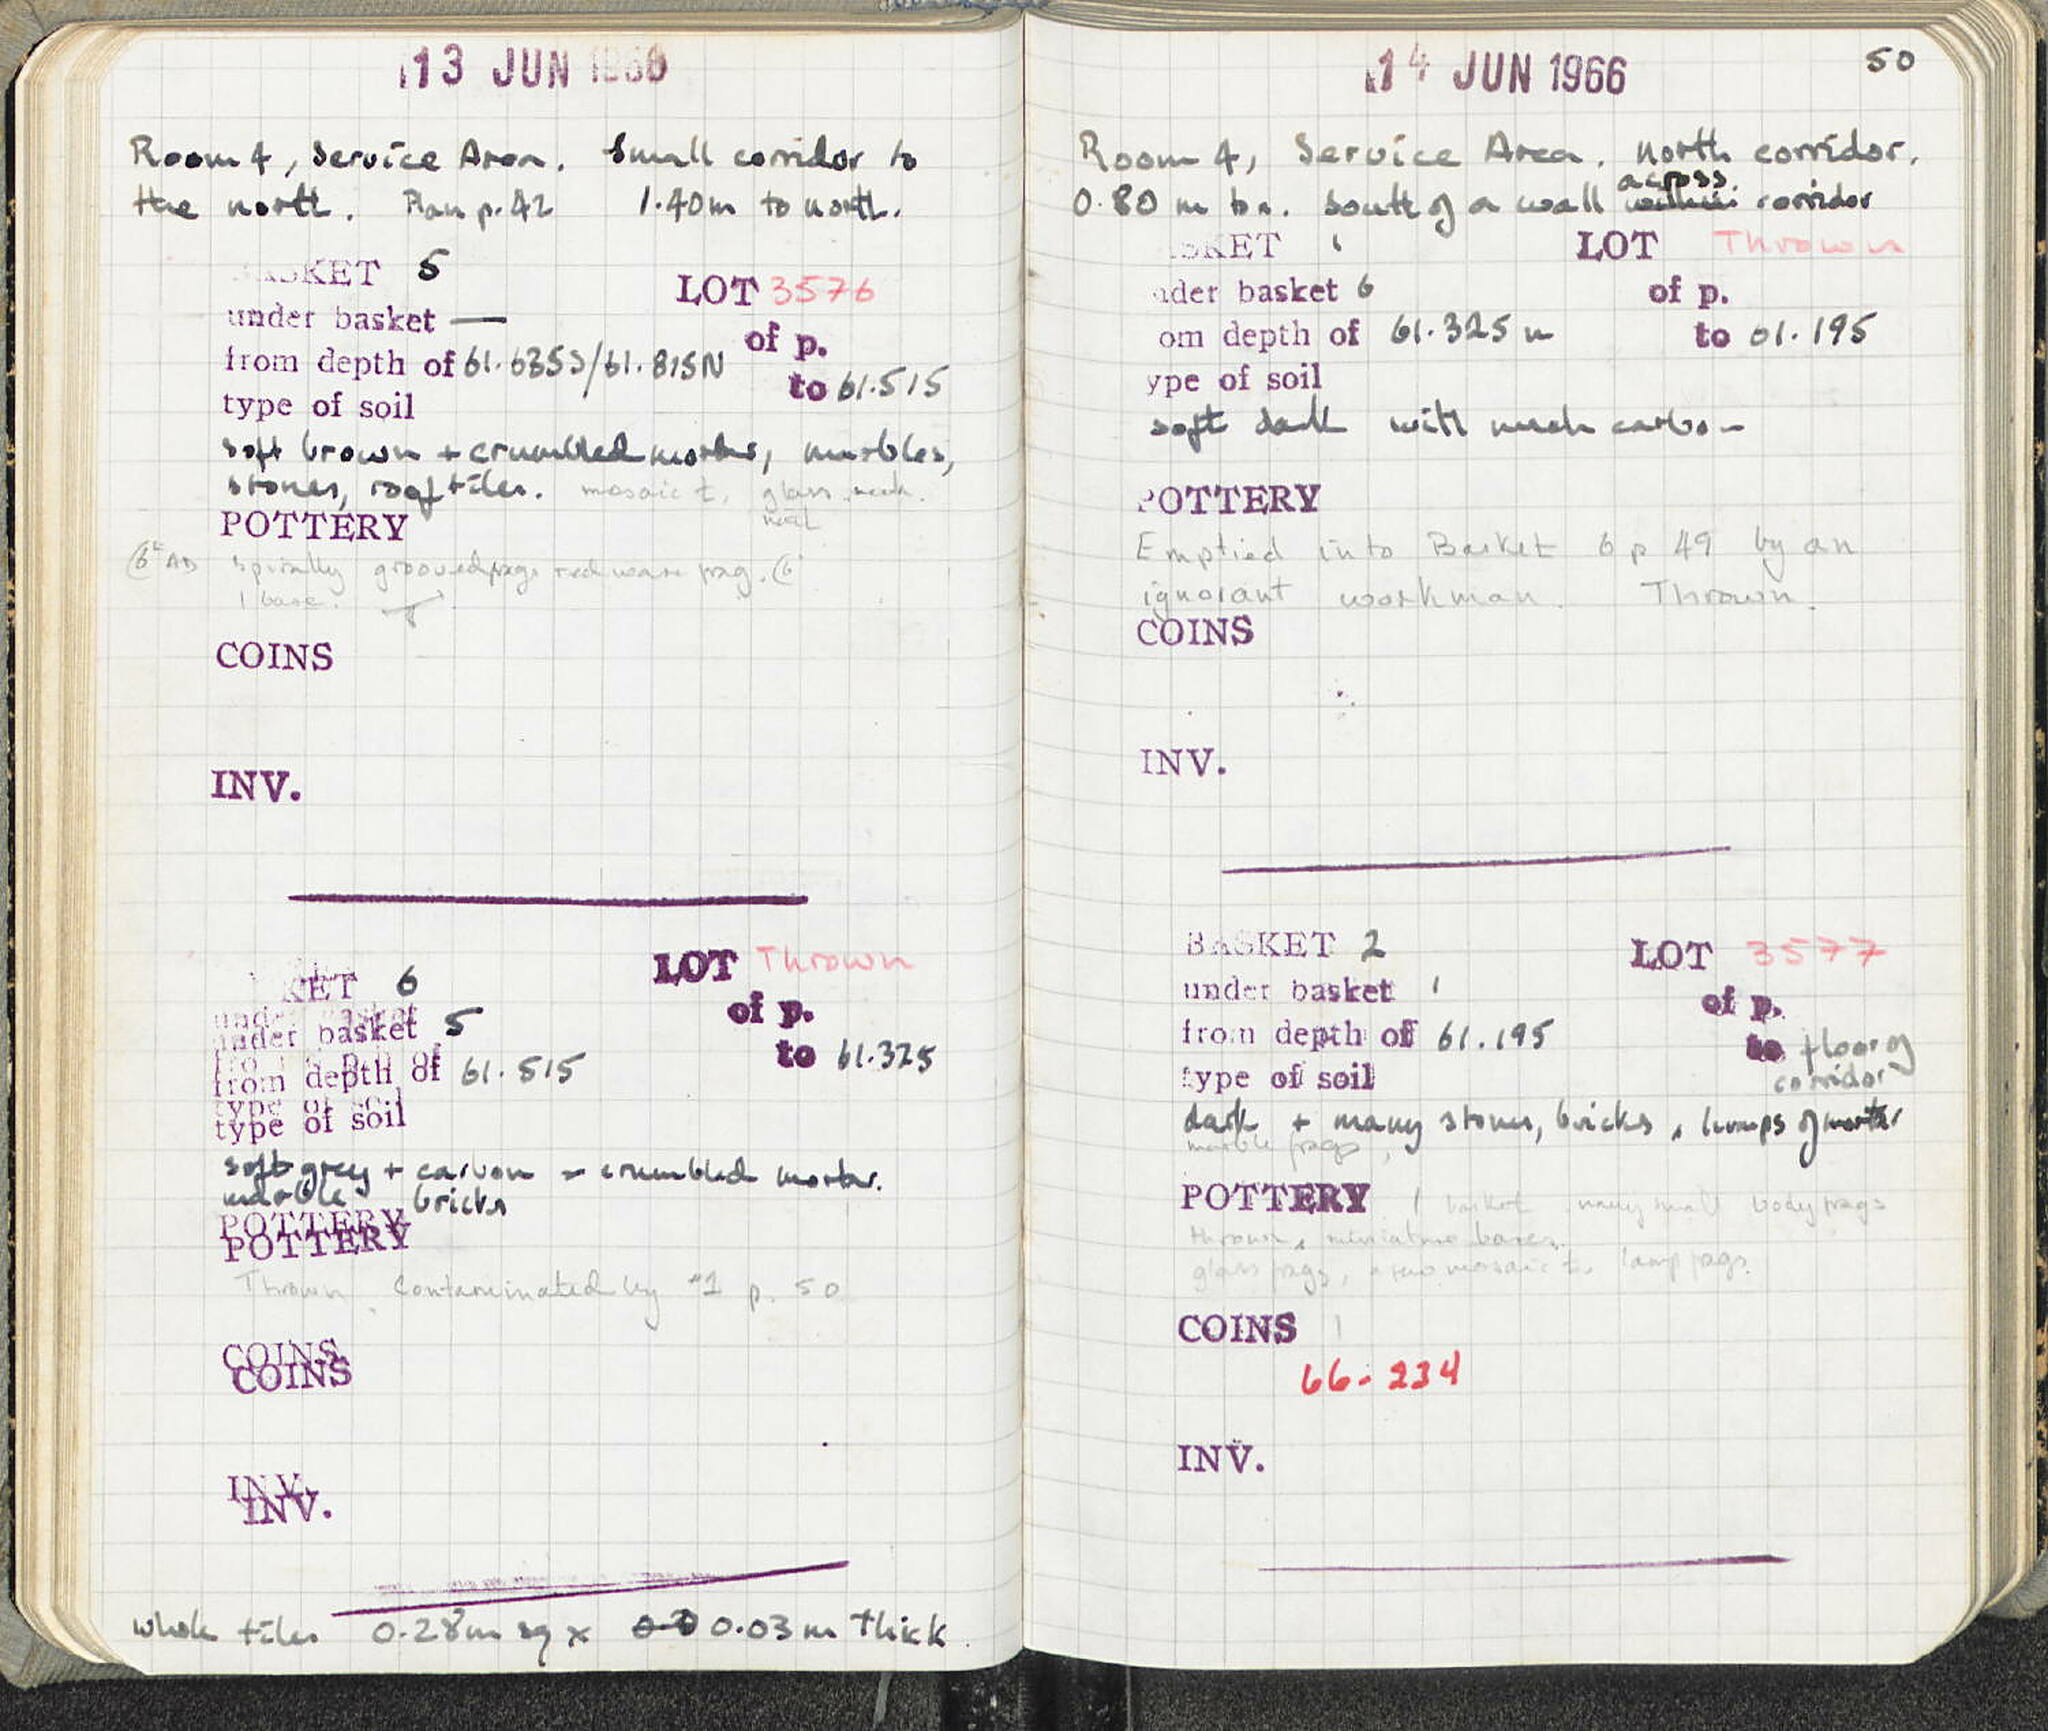 13 JUN 1966
Room 4, Service Area. Small corridor to
the north. Plan p. 42 1.40m to north.
BASKET 5
LOT 3576
under basket —
of p.
from depth of 61.635S/61.815N
to 61.515
type of soil
soft brown + crumbled mortar, marbles,
stones, roof tiles. mosaic t. glass neck.
POTTERY
spirally grooved frags red ware frag.
1 base.
COINS
INV.
BASKET 6
LOT Thrown
of p.
under basket 5
to 61.325
from depth of 61.515
type of soil
soft grey + carbon + crumbled mortar.
marble bricks
POTTERY
Thrown. Contaminated by #1 p. 50
COINS
INV.
whole tiles 0.28m sq x 0.03m thick.
14 JUN 1966
50
Room 4, Service Area. North corridor.
0.80 m to n. south of a wall across corridor
BASKET 1
LOT Thrown
under basket 6
of p.
from depth of 61.325 m
to 61.195
type of soil
soft dark with much carbon
POTTERY
Emptied into Basket 6 p 49 by an
ignorant workman. Thrown.
COINS
INV.
BASKET 2
LOT 3577
under basket 1
of p.
from depth of 61.195
to floor of
corridor
type of soil
dark + many stones, bricks, lumps of mortar
marble frags,
POTTERY 1 basket many small body frags
thrown, miniature bases.
glass frags, mosaic t. lamp frags.
COINS 1
66-234
INV.